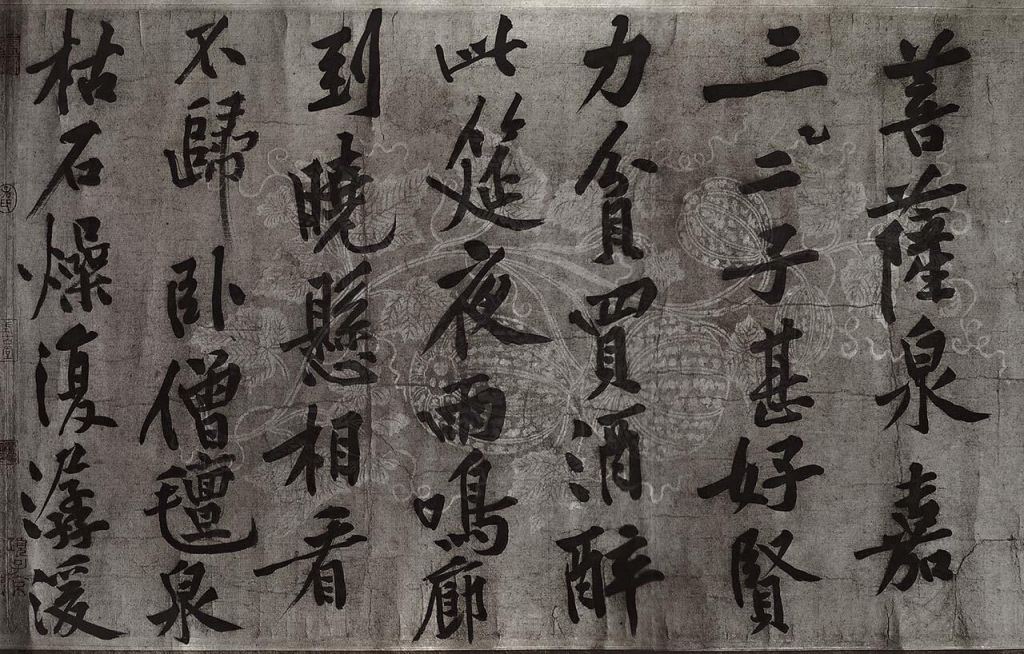 菩薩泉嘉
三二子甚好賢
力貧買酒醉
此筵夜雨鳴廊
到曉懸相看
不歸卧僧氈泉
枯石燥復潺湲